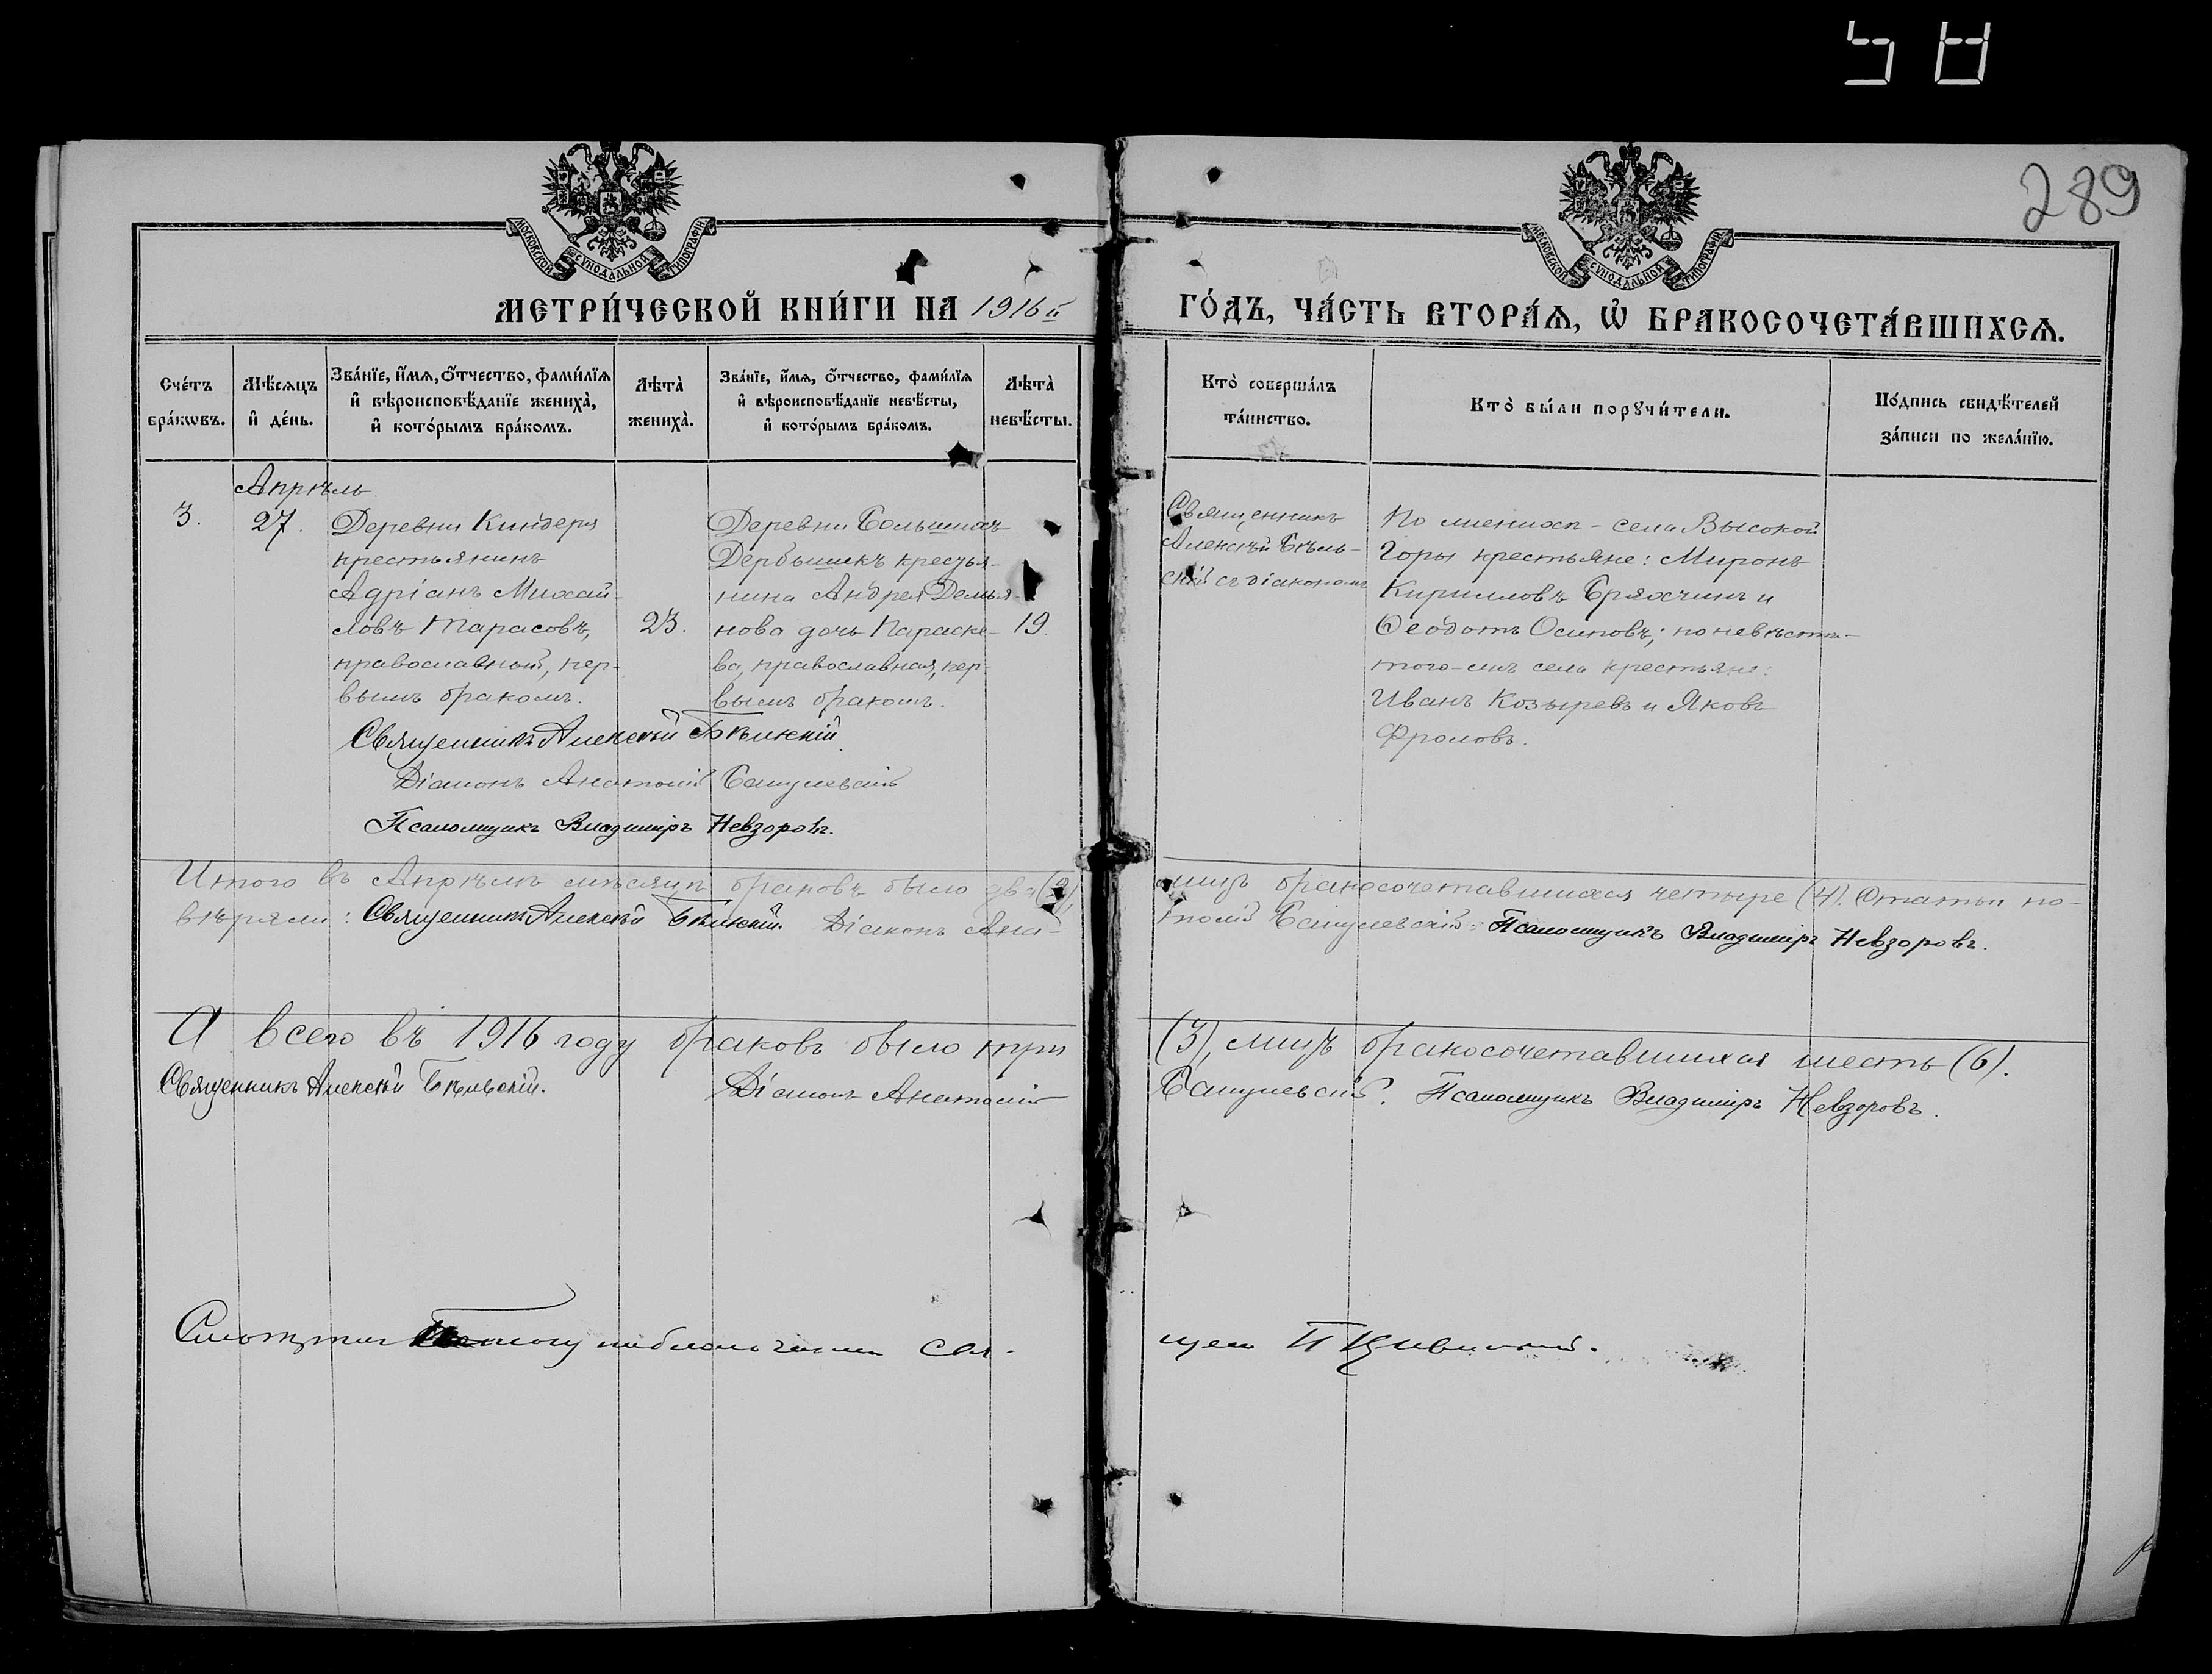 58
289
МОСКОВСКОЙ СѴНОДАЛЬНОЙ ТИПОГРАФІИ
МОСКОВСКОЙ СѴНОДАЛЬНОЙ ТИПОГРАФІИ
МЕТРИ́ЧЕСКОЙ КНИ́ГИ НА 1916й ГО́ДЪ, ЧА́СТЬ ВТОРА́Ѧ, Ѡ҆ БРАКОСОЧЕТА́ВШИХСѦ.
Сче́тъ бра́кѡвъ.
Мѣ́сѧцъ и҆ де́нь.
Зва́нїе, и҆́мѧ, ѻ҆́тчество, фами́лїѧ и҆ вѣроисповѣ́данїе жениха̀, и҆ кото́рымъ бра́комъ.
Лѣта̀ жениха̀.
Зва́нїе, и҆́мѧ, ѻ҆́тчество, фами́лїѧ и҆ вѣроисповѣ́данїе невѣ́сты, и҆ кото́рымъ бра́комъ.
Лѣта̀ невѣ́сты.
Кто̀ соверша́лъ та́инство.
Кто̀ бы́ли порꙋчи́тели.
По́дпись свидѣ́телей за́писи по жела́нїю.
Апрѣль
3.
27.
Деревни Киндеря
крестьянинъ
Адріанъ Михай-
ловъ Тарасовъ,
православный, пер-
вымъ бракомъ.
23.
Деревни Большихъ
Дербышекъ крестья-
нина Андрея Демья-
нова дочь Параске-
ва, православная, пер-
вымъ бракомъ.
19.
Священникъ
Алексѣй Бѣль-
скій съ діакономъ
По женихѣ - села Высокой
Горы крестьяне: Миронъ
Кирилловъ Бряхчинъ и
Ѳеодотъ Осиповъ; по невѣстѣ -
того-жъ села крестьяне:
Иванъ Козыревъ и Яковъ
Фроловъ.
Священникъ Алексѣй Бѣльскій
Діаконъ Анатолій
Псаломщикъ Владиміръ Невзоровъ.
Итого въ Апрѣлѣ мѣсяцѣ браковъ было два (2), лицъ бракосочетавшихся четыре (4). Статьи по-
вѣряли: Священникъ Алексѣй Бѣльскій. Діаконъ Ана-
толій Псаломщикъ Владиміръ Невзоровъ.
А всего въ 1916 году браковъ было три (3), лицъ бракосочетавшихся шесть (6).
Священникъ Алексѣй Бѣльскій. Діаконъ Анатолій
Псаломщикъ Владиміръ Невзоровъ.
свя-
щен